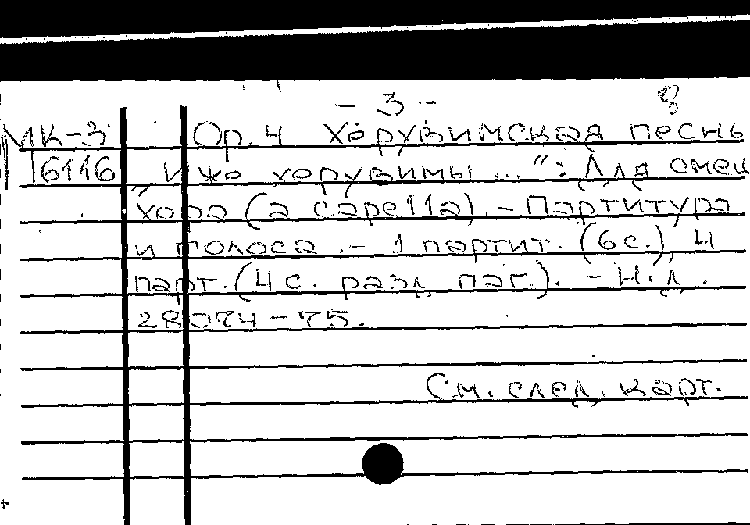 - 3 - 8
МК-3 Op. 4 Херувимская песнь
16116 „Иже херувимы ...": Для смеш
хора (a capella). - Партитура
и голоса. - 1 партит. (6 с.), 4
парт. (4 с. разд. паг.). - Н.д.
28074-75.
См. след. карт.